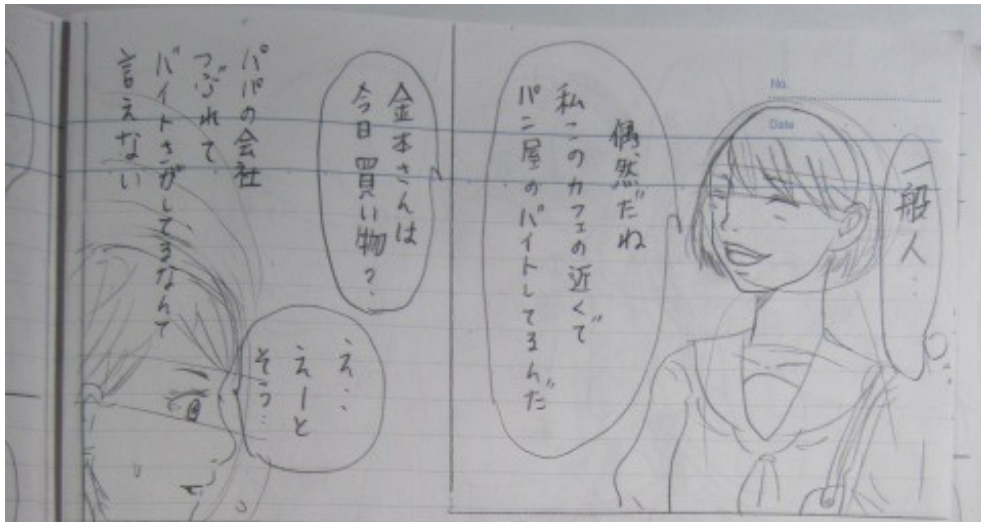 一般人…
偶然だね
私このカフェの近くで
パン屋のバイトしてるんだ
金本さんは
今日買い物?
え、、
えーと
そう…
パパの会社
つぶれて
バイトさがしてるなんて
言えない
No.
Date